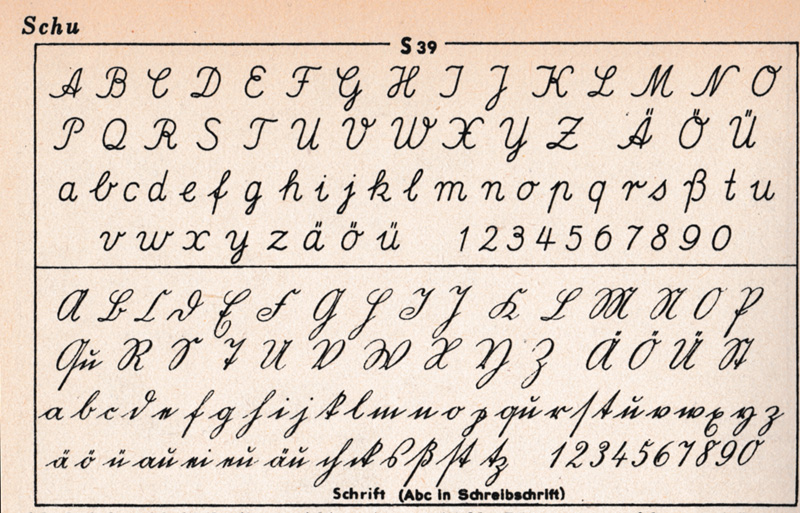 Schu
S 39
A B C D E F G H I J K L M N O
P Q R S T U V W X Y Z Ä Ö Ü
a b c d e f g h i j k l m n o p q r s ß t u
v w x y z ä ö ü 1 2 3 4 5 6 7 8 9 0
A B C D E F G H I J K L M N O P
Qu R S T U V W X Y Z Ä Ö Ü St
a b c d e f g h i j k l m n o p qu r s t u v w x y z
ä ö ü au ei eu äu ch ck s ß st tz 1 2 3 4 5 6 7 8 9 0
Schrift (Abc in Schreibschrift)